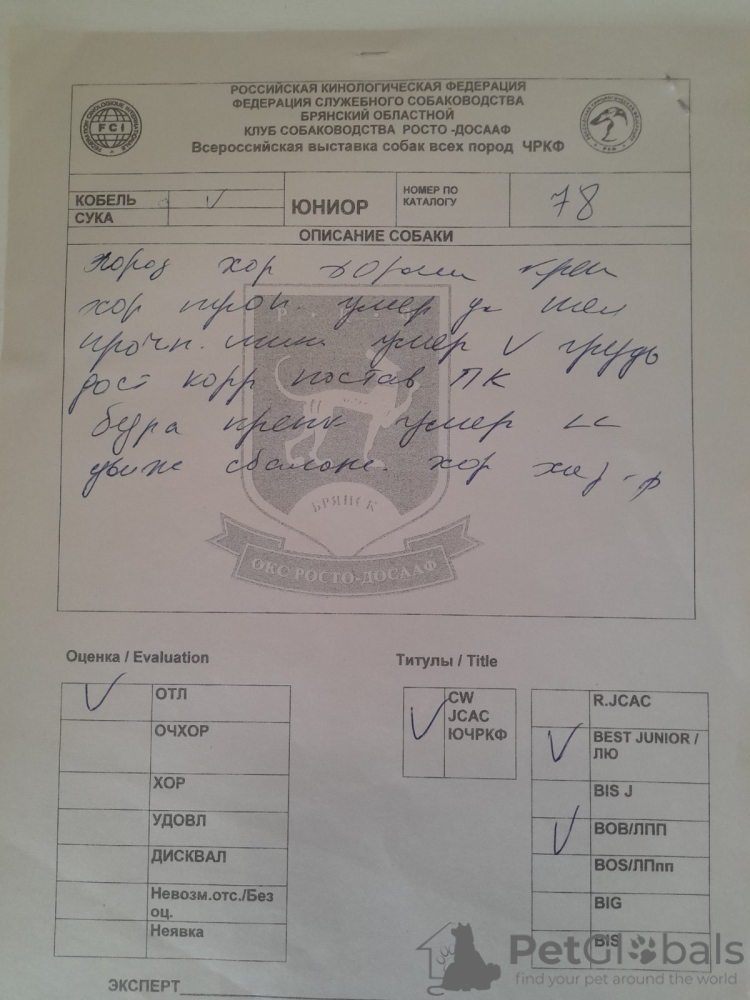 РОССИЙСКАЯ КИНОЛОГИЧЕСКАЯ ФЕДЕРАЦИЯ
ФЕДЕРАЦИЯ СЛУЖЕБНОГО СОБАКОВОДСТВА
БРЯНСКИЙ ОБЛАСТНОЙ
КЛУБ СОБАКОВОДСТВА РОСТО -ДОСААФ
Всероссийская выставка собак всех пород ЧРКФ
FCI
КОБЕЛЬ V
СУКА
ЮНИОР
НОМЕР ПО
КАТАЛОГУ
78
ОПИСАНИЕ СОБАКИ
хор
хор умер
прочн. умер V грудь
рост корр постав ПК
умер
движ сбаланс. хор
БРЯНСК
ОКС РОСТО-ДОСААФ
Оценка / Evaluation
V ОТЛ
ОЧХОР
ХОР
УДОВЛ
ДИСКВАЛ
Невозм.отс./Без
оц.
Неявка
Титулы / Title
V CW
JCAC
ЮЧРКФ
R.JCAC
V BEST JUNIOR /
ЛЮ
BIS J
V BOB/ЛПП
BOS/ЛПпп
BIG
BIS
ЭКСПЕРТ
PetGlobals
find your pet around the world